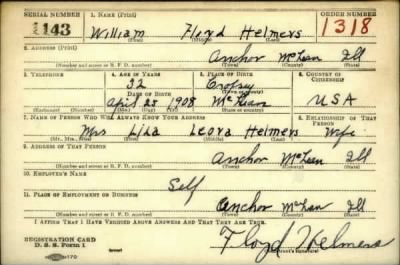 SERIAL NUMBER 1. NAME (Print) ORDER NUMBER
1143 William Floyd Helmers 1318
(First) (Middle) (Last)
2. ADDRESS (Print)
Anchor McLean Ill
(Number and street or R. F. D. number) (Town) (County) (State)
3. TELEPHONE 4. AGE IN YEARS 5. PLACE OF BIRTH 6. COUNTRY OF CITIZENSHIP
32 Cropsy
DATE OF BIRTH (Town or county)
April 28 1908 McLean USA
(Mo.) (Day) (Yr.) (State or country)
7. NAME OF PERSON WHO WILL ALWAYS KNOW YOUR ADDRESS 8. RELATIONSHIP OF THAT PERSON
Mrs Lida Leora Helmers Wife
(Mr., Mrs., Miss) (First) (Middle) (Last)
9. ADDRESS OF THAT PERSON
Anchor McLean Ill
(Number and street or R. F. D. number) (Town) (County) (State)
10. EMPLOYER'S NAME
Self
11. PLACE OF EMPLOYMENT OR BUSINESS
Anchor McLean Ill
(Number and street or R. F. D. number) (Town) (County) (State)
I AFFIRM THAT I HAVE VERIFIED ABOVE ANSWERS AND THAT THEY ARE TRUE.
REGISTRATION CARD
D. S. S. Form 1 Floyd Helmers